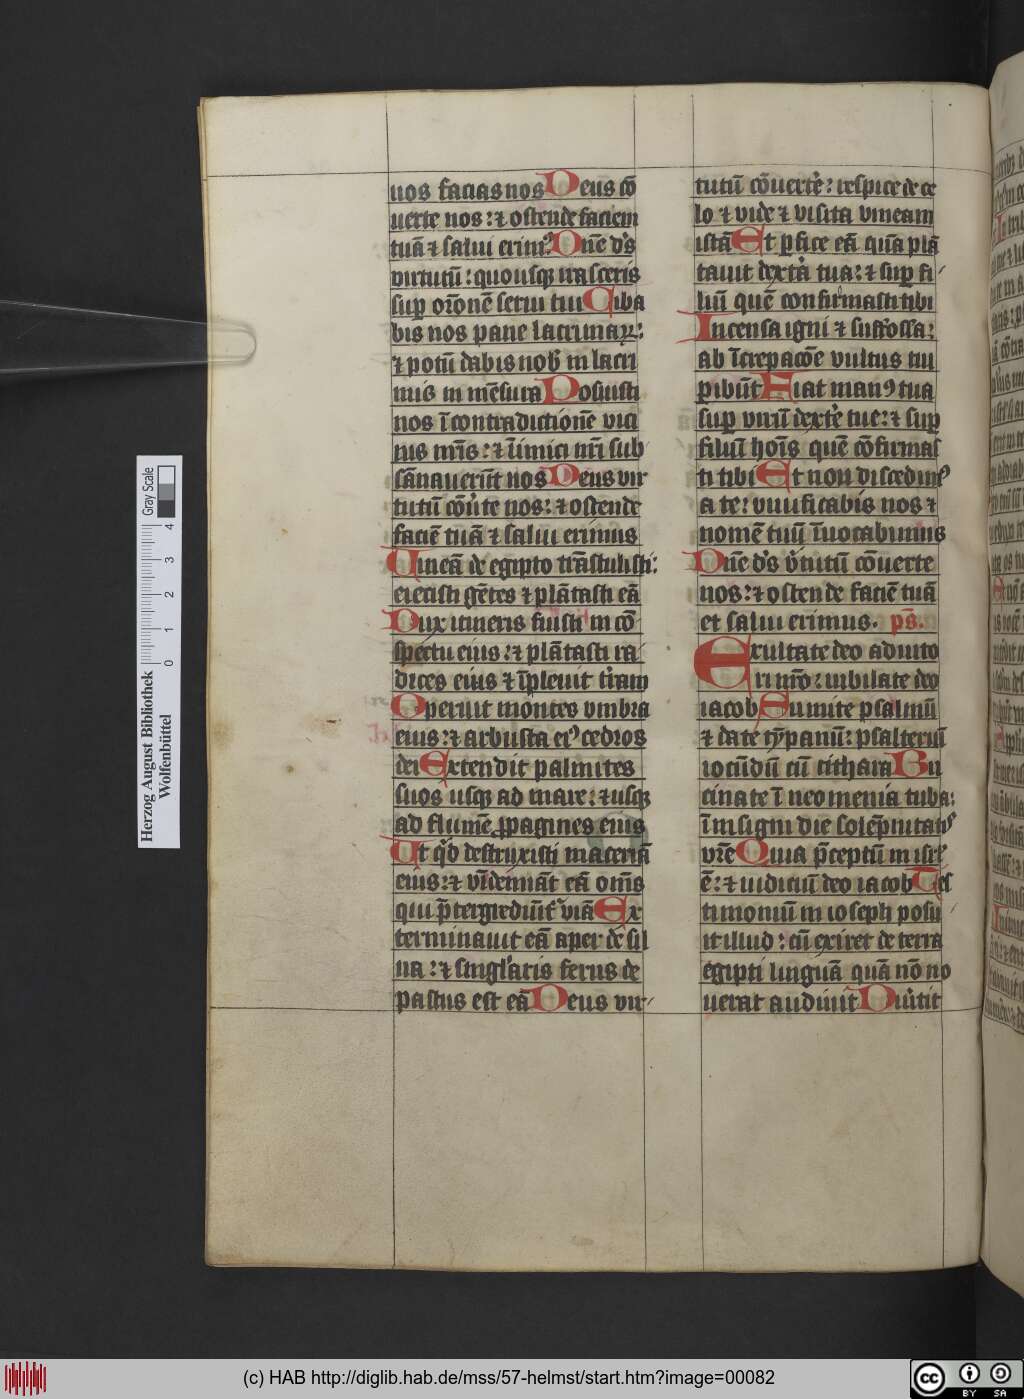 uos facias nos Deus cō
uerte nos: ⁊ ostende faciem
tuā ⁊ salui erimꝰ Dn̄e ds̄
virtutū: quousqꝫ irasceris
suꝑ or̄onē serui tui Ciba
bis nos pane lacrimaꝝ:
⁊ potū dabis nob̄ in lacri
mis in mēsura Posuisti
nos ī contradictionē vici
nis nr̄is: ⁊ īimici nr̄i sub
sānauerūt nos Deus vir
tutū cōu̓te nos: ⁊ ostende
faciē tuā ⁊ salui erimus
Uineā de egipto trāstulisti:
eiecisti gētes ⁊ plātasti eā
Dux itineris fuisti in cō
spectu eius: ⁊ plātasti ra
dices eius ⁊ īpleuit t̓ram
Operuit montes vmbra
eius: ⁊ arbusta eiꝰ cedros
dei Extendit palmites
suos usqꝫ ad mare: ⁊ usqꝫ
ad flumē ꝓpagines eius
Ut qd̓ destruxisti maceriā
eius: ⁊ vīdemiāt eā om̄s
qui p̄tergrediūt᷑ viā Ex
terminauit eā aper de sil
ua: ⁊ singl̓aris ferus de
pastus est eā Deus vir
tutū cōuerte̓: respice de ce
lo ⁊ vide ⁊ visita vineam
istā Et ꝑfice eā quā plā
tauit dext̓a tua: ⁊ suꝑ fi
liū quē confirmasti tibi
Incensa igni ⁊ suffossa:
ab īcrepacōe vultus tui
ꝑibūt Fiat manꝰ tua
suꝑ virū dext̓e tue: ⁊ suꝑ
filiū hoīs quē cōfirmas
ti tibi Et non discedimꝰ
a te: viuificabis nos ⁊
nomē tuū īuocabimus
Dn̄e ds̄ v̓tutū cōuerte
nos: ⁊ ostende faciē tuā
et salui erimus. ps̄.
Exultate deo adiuto
ri nr̄o: iubilate deo
iacob Sumite psalmū
⁊ date tȳpanū: psalteriū
iocūdū cū cithara Bu
cinate ī neomenia tuba:
ī insigni die solēpnitatꝭ
vr̄e Quia p̄ceptū in isrl̓
ē: ⁊ iudiciū deo iacob Tes
timoniū in ioseph posu
it illud: cū exiret de terra
egipti linguā quā nō no
uerat audiuit Diu̓tit
Herzog August Bibliothek
Wolfenbüttel
Gray Scale
0 1 2 3 4
(c) HAB http://diglib.hab.de/mss/57-helmst/start.htm?image=00082
cc BY SA